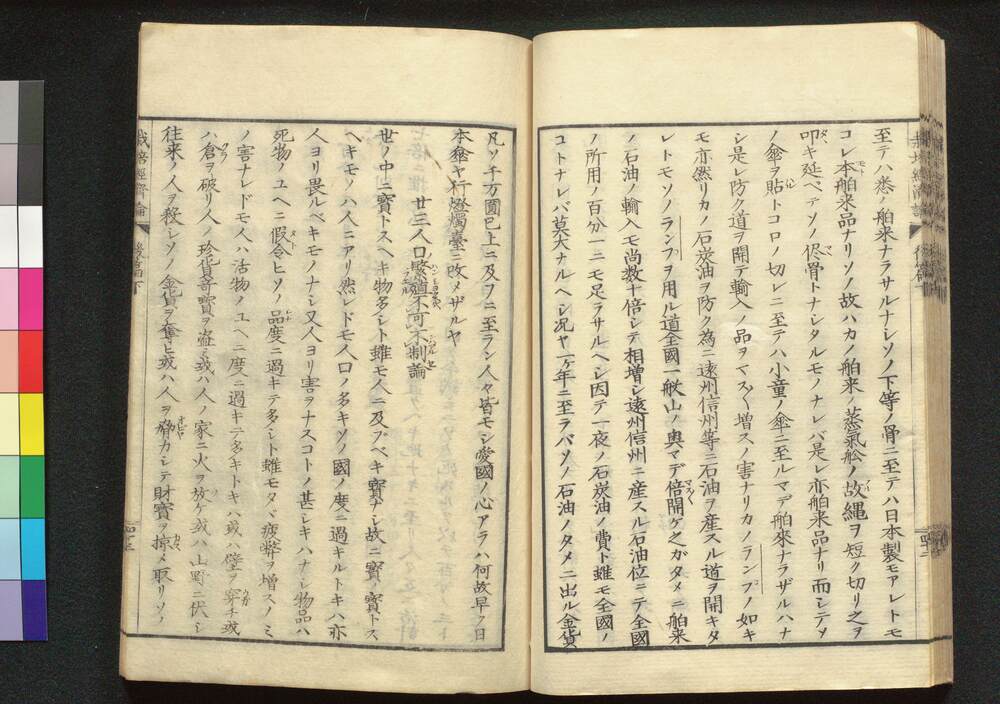 至テハ悉ク舶来ナラサルナシソノ下等ノ骨ニ至テハ日本製モアレトモ
コレ本舶来品ナリソノ故ハカノ舶来ノ蒸氣舩ノ故縄ヲ短ク切リ之ヲ
叩キ延ベテソノ傘骨トナシタルモノナレバ是レ亦舶来品ナリ而シテメ
ノ傘ヲ貼トコロノ切レニ至テハ小童ノ傘ニ至ルマデ舶來ナラザルハナ
シ是レ防ク道ヲ開テ輸入ノ品ヲマスマス増スノ害ナリカノランプノ如キ
モ亦然リカノ石炭油ヲ防ク為ニ遠州信州等ニ石油ヲ産スル道ヲ開キタ
レトモソノランプヲ用ル道全國一般山ノ奥マデ倍開ケ之ガタメニ舶来
ノ石油ノ輸入モ尚数十倍シテ相増シ遠州信州ニ産スル石油位ニテ全國
ノ所用ノ百分一ニモ足ラサルヘシ因テ一夜ノ石炭油ノ費ト雖モ全國ノ
コトナレバ莫大ナルヘシ况ヤ一ヶ年ニ至ラバソノ石油ノタメニ出ル金貨
凡ソ千万圓已上ニ及フニ至ラン人々皆モシ愛國ノ心アラハ何故早ク日
本傘ヤ行燈燭臺ニ改メザルヤ
廿三人口繁殖不可不制論
世ノ中ニ寳トスヘキ物多シト雖モ人ニ及ブベキ寳ナシ故ニ寳ノ寳トス
ヘキモノハ人ニアリ然レドモ人口ノ多キソノ國ノ度ニ過キルトキハ亦
人ヨリ畏ルベキモノナシ又人ヨリ害ヲナスコトノ甚シキハナシ物品ハ
死物ノユヘニ假令ヒソノ品度ニ過キテ多シト雖モタヾ疲弊ヲ増スノミ
ノ害ナレドモ人ハ活物ノユヘニ度ニ過キテ多キトキハ或ハ壁ヲ穿チ或
ハ倉ヲ破リ人ノ珍貨竒寳ヲ盗ミ或ハ人ノ家ニ火ヲ放ケ或ハ山野ニ伏シ
往来ノ人ヲ殺シソノ金貨ヲ奪ヒ或ハ人ヲ脅カシテ財寳ヲ掠メ取リソノ
栽培經濟論
後篇下
四十三
四十二